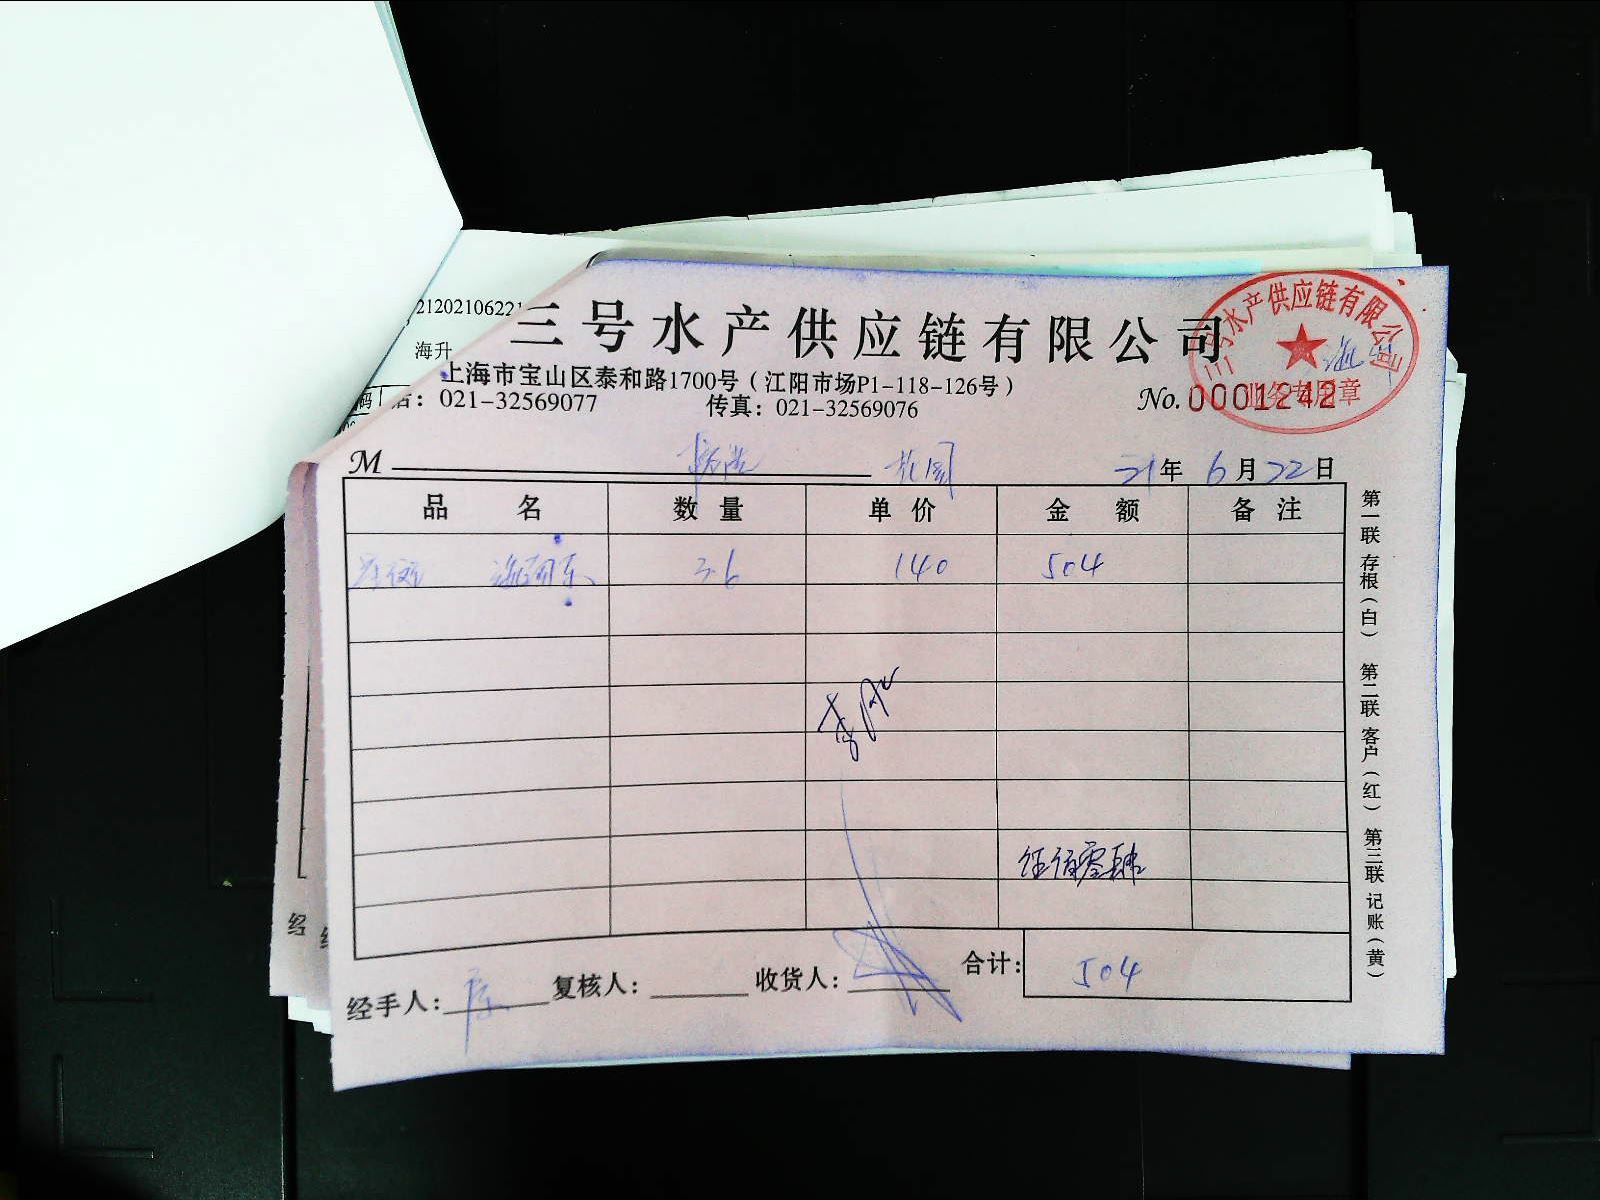 21202106221
海升
三号水产供应链有限公司
上海市宝山区泰和路1700号（江阳市场P1-118-126号）
021-32569077 传真：021-32569076
No. 0001242
三号水产供应链有限公司
业务专用章
M
21年6月22日
品名 数量 单价 金额 备注
3.6 140 504
伍佰零肆
合计： 504
经手人： 复核人： 收货人：
第一联 存根（白） 第二联 客户（红） 第三联 记账（黄）